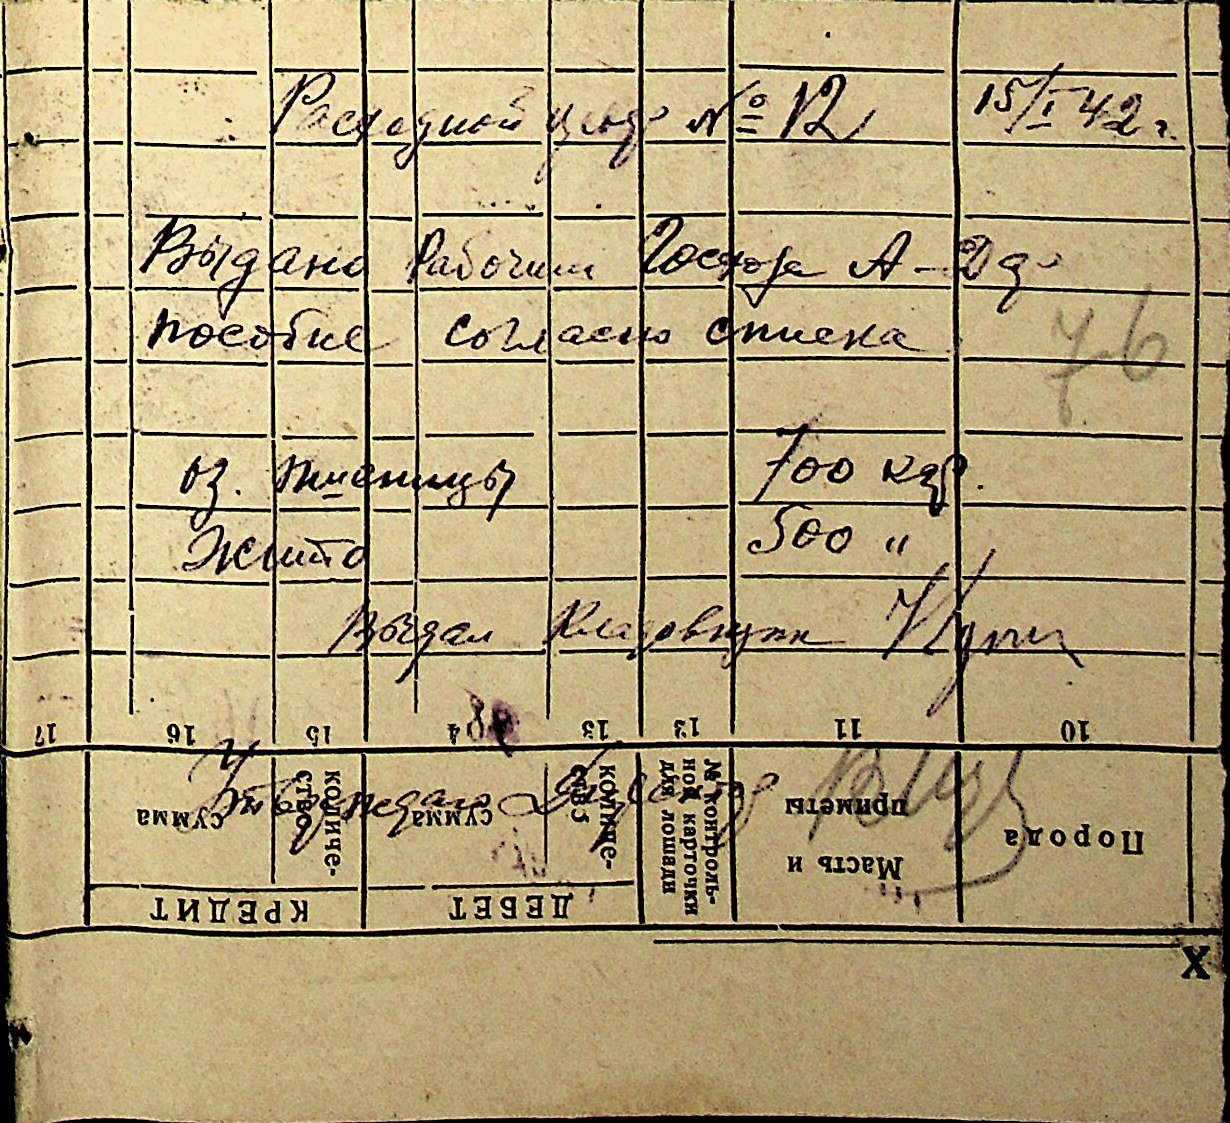 Расходной № 12 15/I 42 г.
Выдано Рабочим Госхоза А-
пособие согласно списка
76
оз. пшеницы 700 кгр.
Жито 500 "
Выдал Кладовщик
17 16 15 14 13 12 11 10
Утверждаю
сумма
количе-
ство
сумма
количе-
ство
№ контроль-
ной карточки
для лошади
Масть и
приметы
Порода
КРЕДИТ
ДЕБЕТ
X